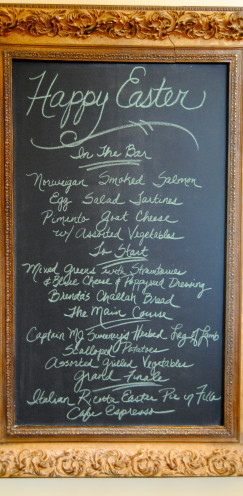 Happy Easter
In The Bar
Norwegian Smoked Salmon
Egg Salad Tartines
Pimento Goat Cheese
w/ Assorted Vegetables
To Start
Mixed Greens with Strawberries
& Blue Cheese & Poppyseed Dressing
Brenda's Challah Bread
The Main Course
Captain Mc Sweeney's Herbed Leg of Lamb
Scalloped Potatoes
Assorted Grilled Vegetables
Grand Finale
Italian Ricotta Easter Pie w
Cafe Espresso